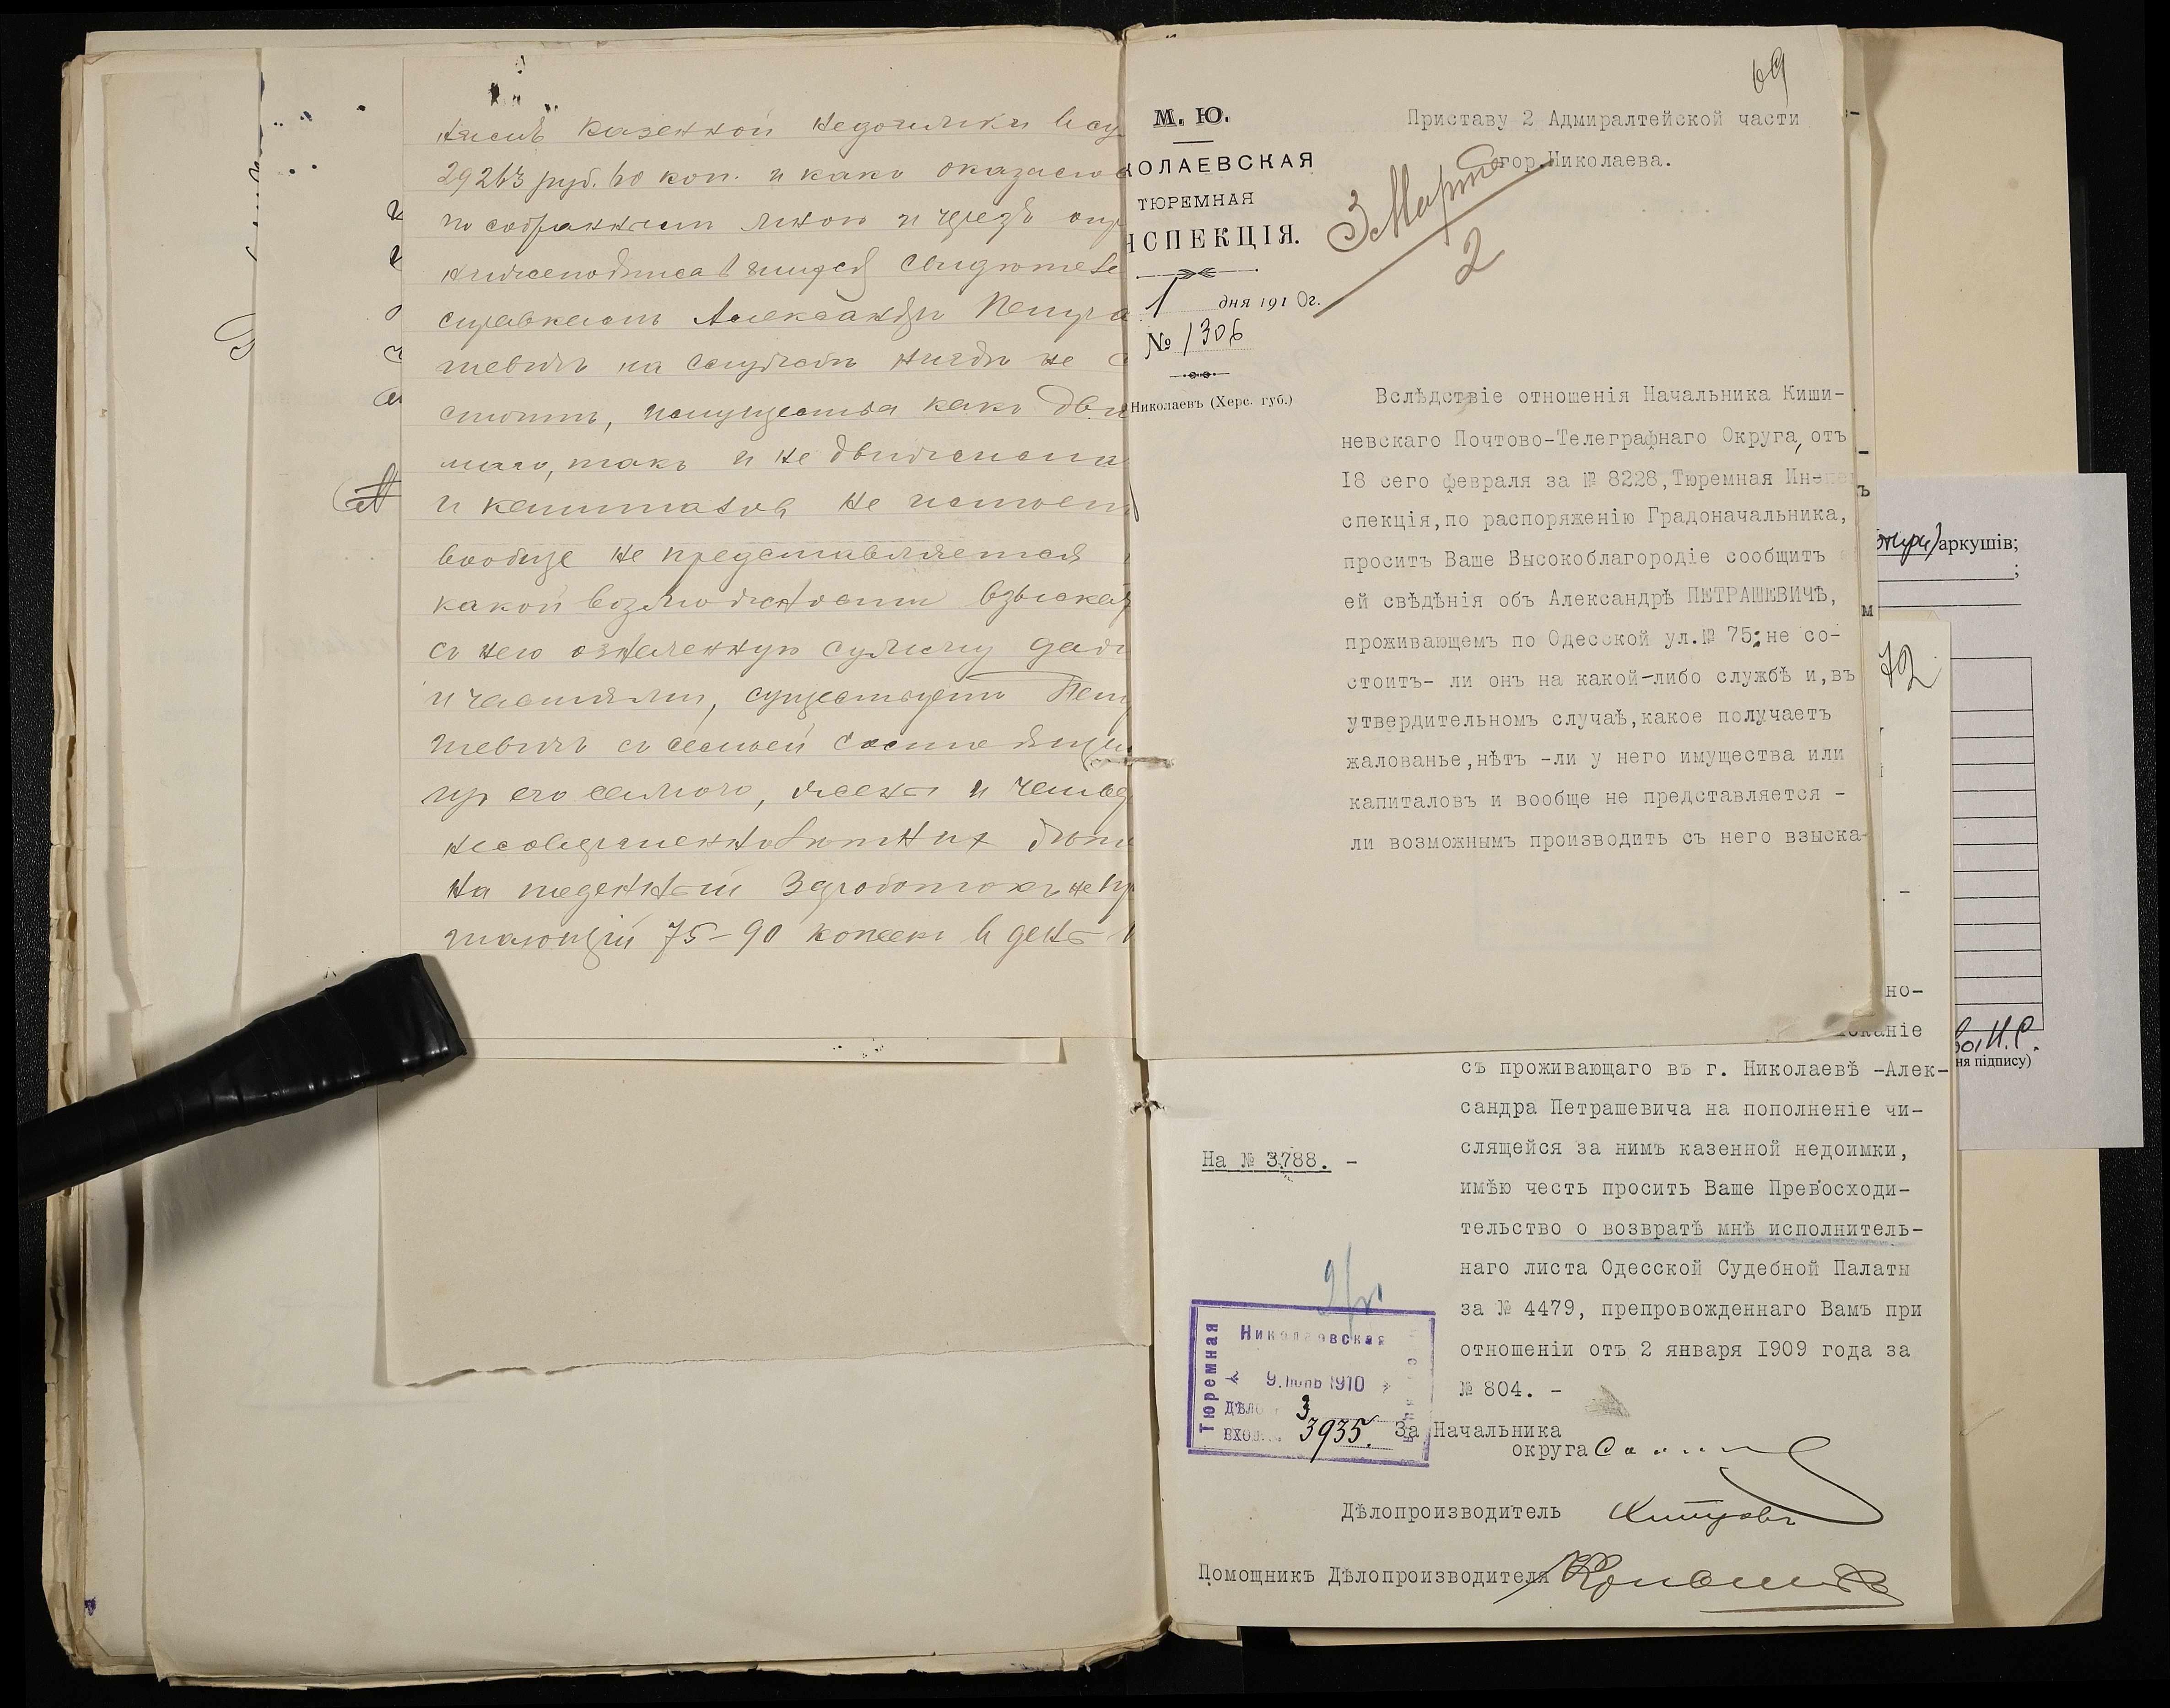 казенной недоимки в су
29263 руб. 60 коп. и какъ оказалось
по собраннымъ мною и чрезъ
нижеподписавшихся свидѣтеле
справкамъ Александръ Петра
шевичъ на службѣ нигдѣ не с
стоитъ, имущества какъ дви
маго, такъ и не движимаго
и капиталовъ не имѣетъ
вообще не представляется
какой возможности взыскать
съ него означенную сумму даже
и частями, существуетъ Пет
шевичъ съ семьей состоящей
изъ его самого, жены и
несовершеннолѣтнихъ дѣтей
на поденный заработокъ не пр
шающій 75-90 копѣекъ въ день
69
М. Ю.
КОЛАЕВСКАЯ
ТЮРЕМНАЯ
НСПЕКЦІЯ.
1 дня 1910г.
№ 1306
Николаевъ (Херс. губ.)
Приставу 2 Адмиралтейской части
гор.Николаева.
3 Марта
2
Вслѣдствіе отношенія Начальника Киши-
невскаго Почтово-Телеграфнаго Округа, отъ
18 сего февраля за № 8228,Тюремная Ин-
спекція,по распоряженію Градоначальника,
проситъ Ваше Высокоблагородіе сообщить
ей свѣдѣнія объ Александрѣ ПЕТРАШЕВИЧѢ,
проживающемъ по Одесской ул.№ 75;не со-
стоитъ- ли онъ на какой-либо службѣ и,въ
утвердительномъ случаѣ,какое получаетъ
жалованье,нѣтъ -ли у него имущества или
капиталовъ и вообще не представляется -
ли возможнымъ производить съ него взыска-
аркушів;
72
но-
сканіе
ня підпису)
съ проживающаго въ г. Николаевѣ -Алек-
сандра Петрашевича на пополненіе чи-
слящейся за нимъ казенной недоимки,
имѣю честь просить Ваше Превосходи-
тельство о возвратѣ мнѣ исполнитель-
наго листа Одесской Судебной Палаты
за № 4479, препровожденнаго Вамъ при
отношеніи отъ 2 января 1909 года за
№ 804. -
На № 3788. -
Николаевская
Тюремная
9.Іюнь 1910
ДѢЛО 3
ВХОД. 3935.
За Начальника
округа
Дѣлопроизводитель
Помощникъ Дѣлопроизводителя